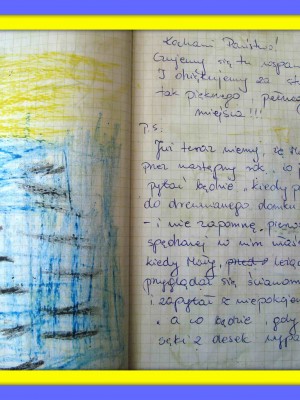 Kochani Państwo!
Czujemy się tu wspan
I dziękujemy za st
tak pięknego, pełneg
miejsca!!!
P.S.
Już teraz wiemy, że S
przez następny rok, co
pytać będzie „kiedy p
do drewnianego domku
- i nie zapomnę, pierws
spędzonej w nim
kiedy Mały, leżąc
przyglądał się ścianom
i zapytał z niepokoje
- a co będzie, gdy
sęki z desek wypa